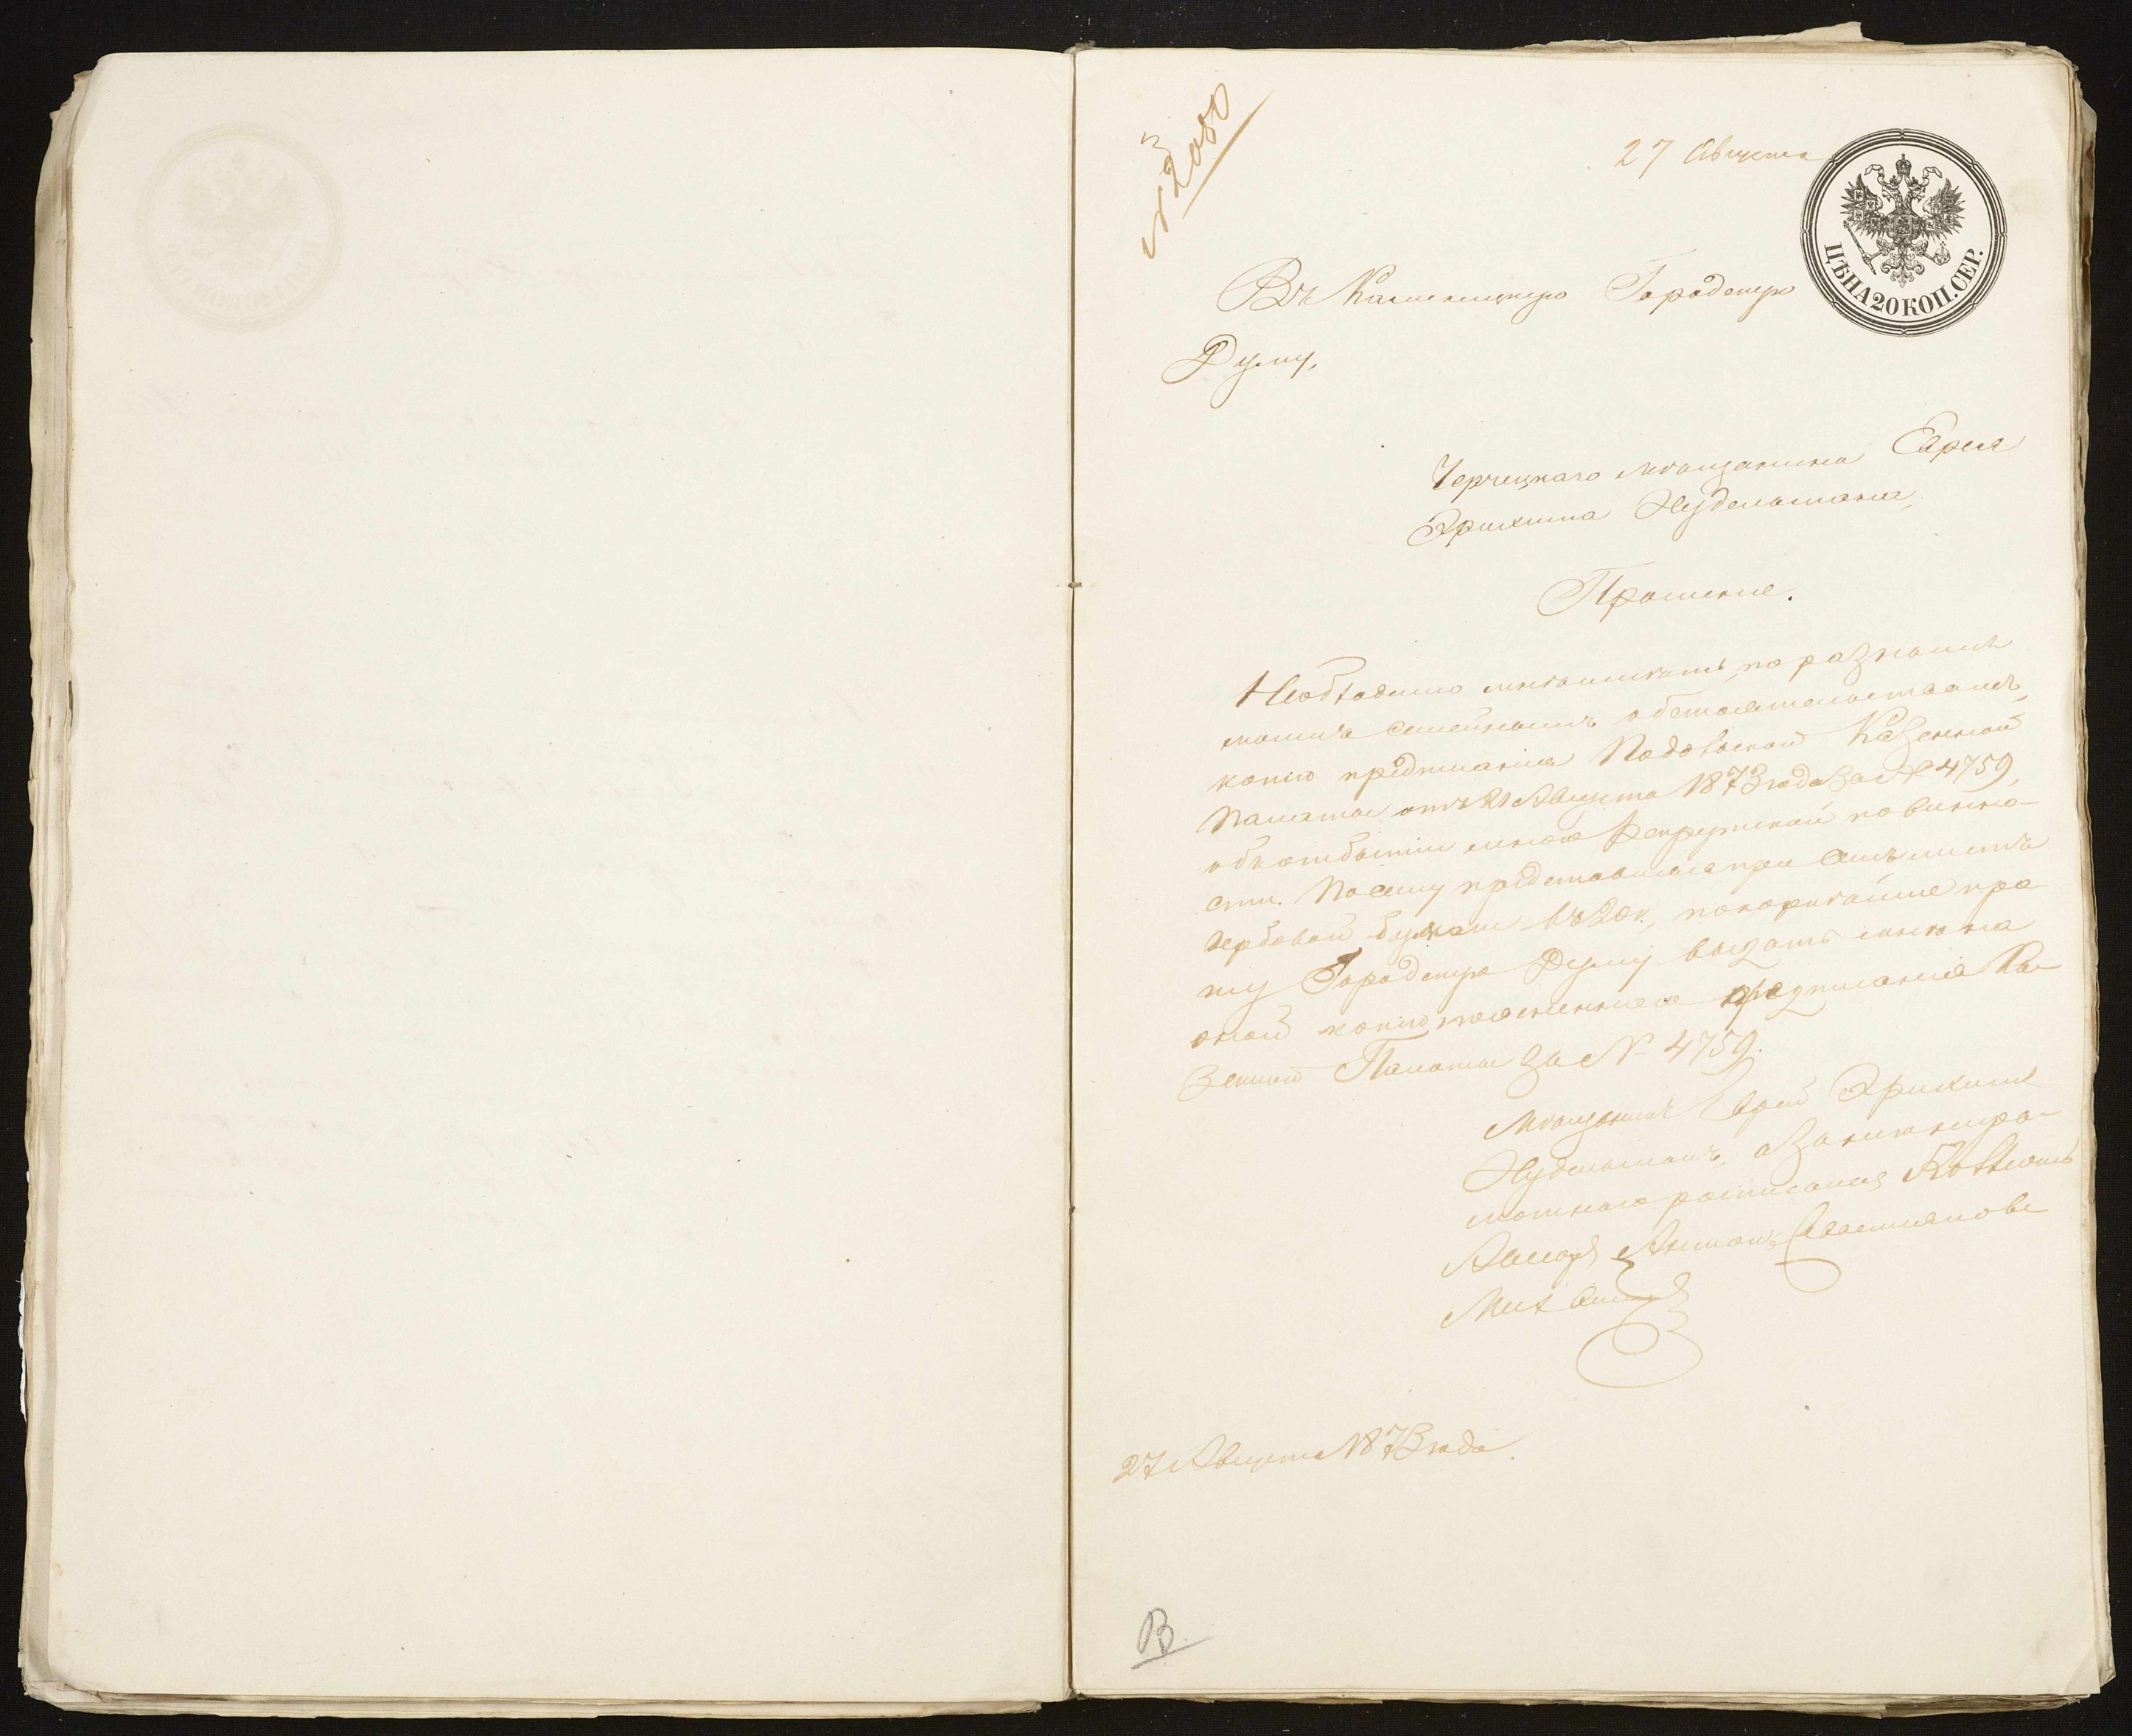 № 2080
27 Августа
ЦѢНА 20 КОП. СЕР.
Въ Каменецкую Городскую
Думу,
Черчецкаго мѣщанина Еврея
Нудельмана,
Прошеніе.
Необходимо мнѣ имѣть, по разнымъ
моимъ семейнымъ обстоятельствамъ,
копію предписанія Подольской Казенной
Палаты отъ 21 Августа 1873 года за № 4759,
объ отбытіи мною рекрутской повинно-
сти. Посему представляя при семъ листъ
гербовой бумаги въ 20 к., покорнѣйше про-
шу Городскую Думу выдать мнѣ на
оной копію предписанія Ка-
зенной Палаты за № 4759.
Мѣщанинъ Еврей
Нудельманъ, а за него негра-
мотнаго росписался
Антонъ
27 Августа 1873 года.
В